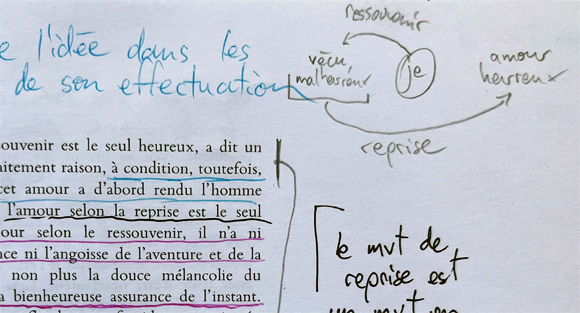 e l'idée dans les
de son effectuation
ressouvenir
vécu
malheureux
je
amour
heureux
reprise
ouvenir est le seul heureux, a dit un
aitement raison, à condition, toutefois,
cet amour a d'abord rendu l'homme
l'amour selon la reprise est le seul
our selon le ressouvenir, il n'a ni
nce ni l'angoisse de l'aventure et de la
non plus la douce mélancolie du
a bienheureuse assurance de l'instant.
le mvt de
reprise est
un mvt